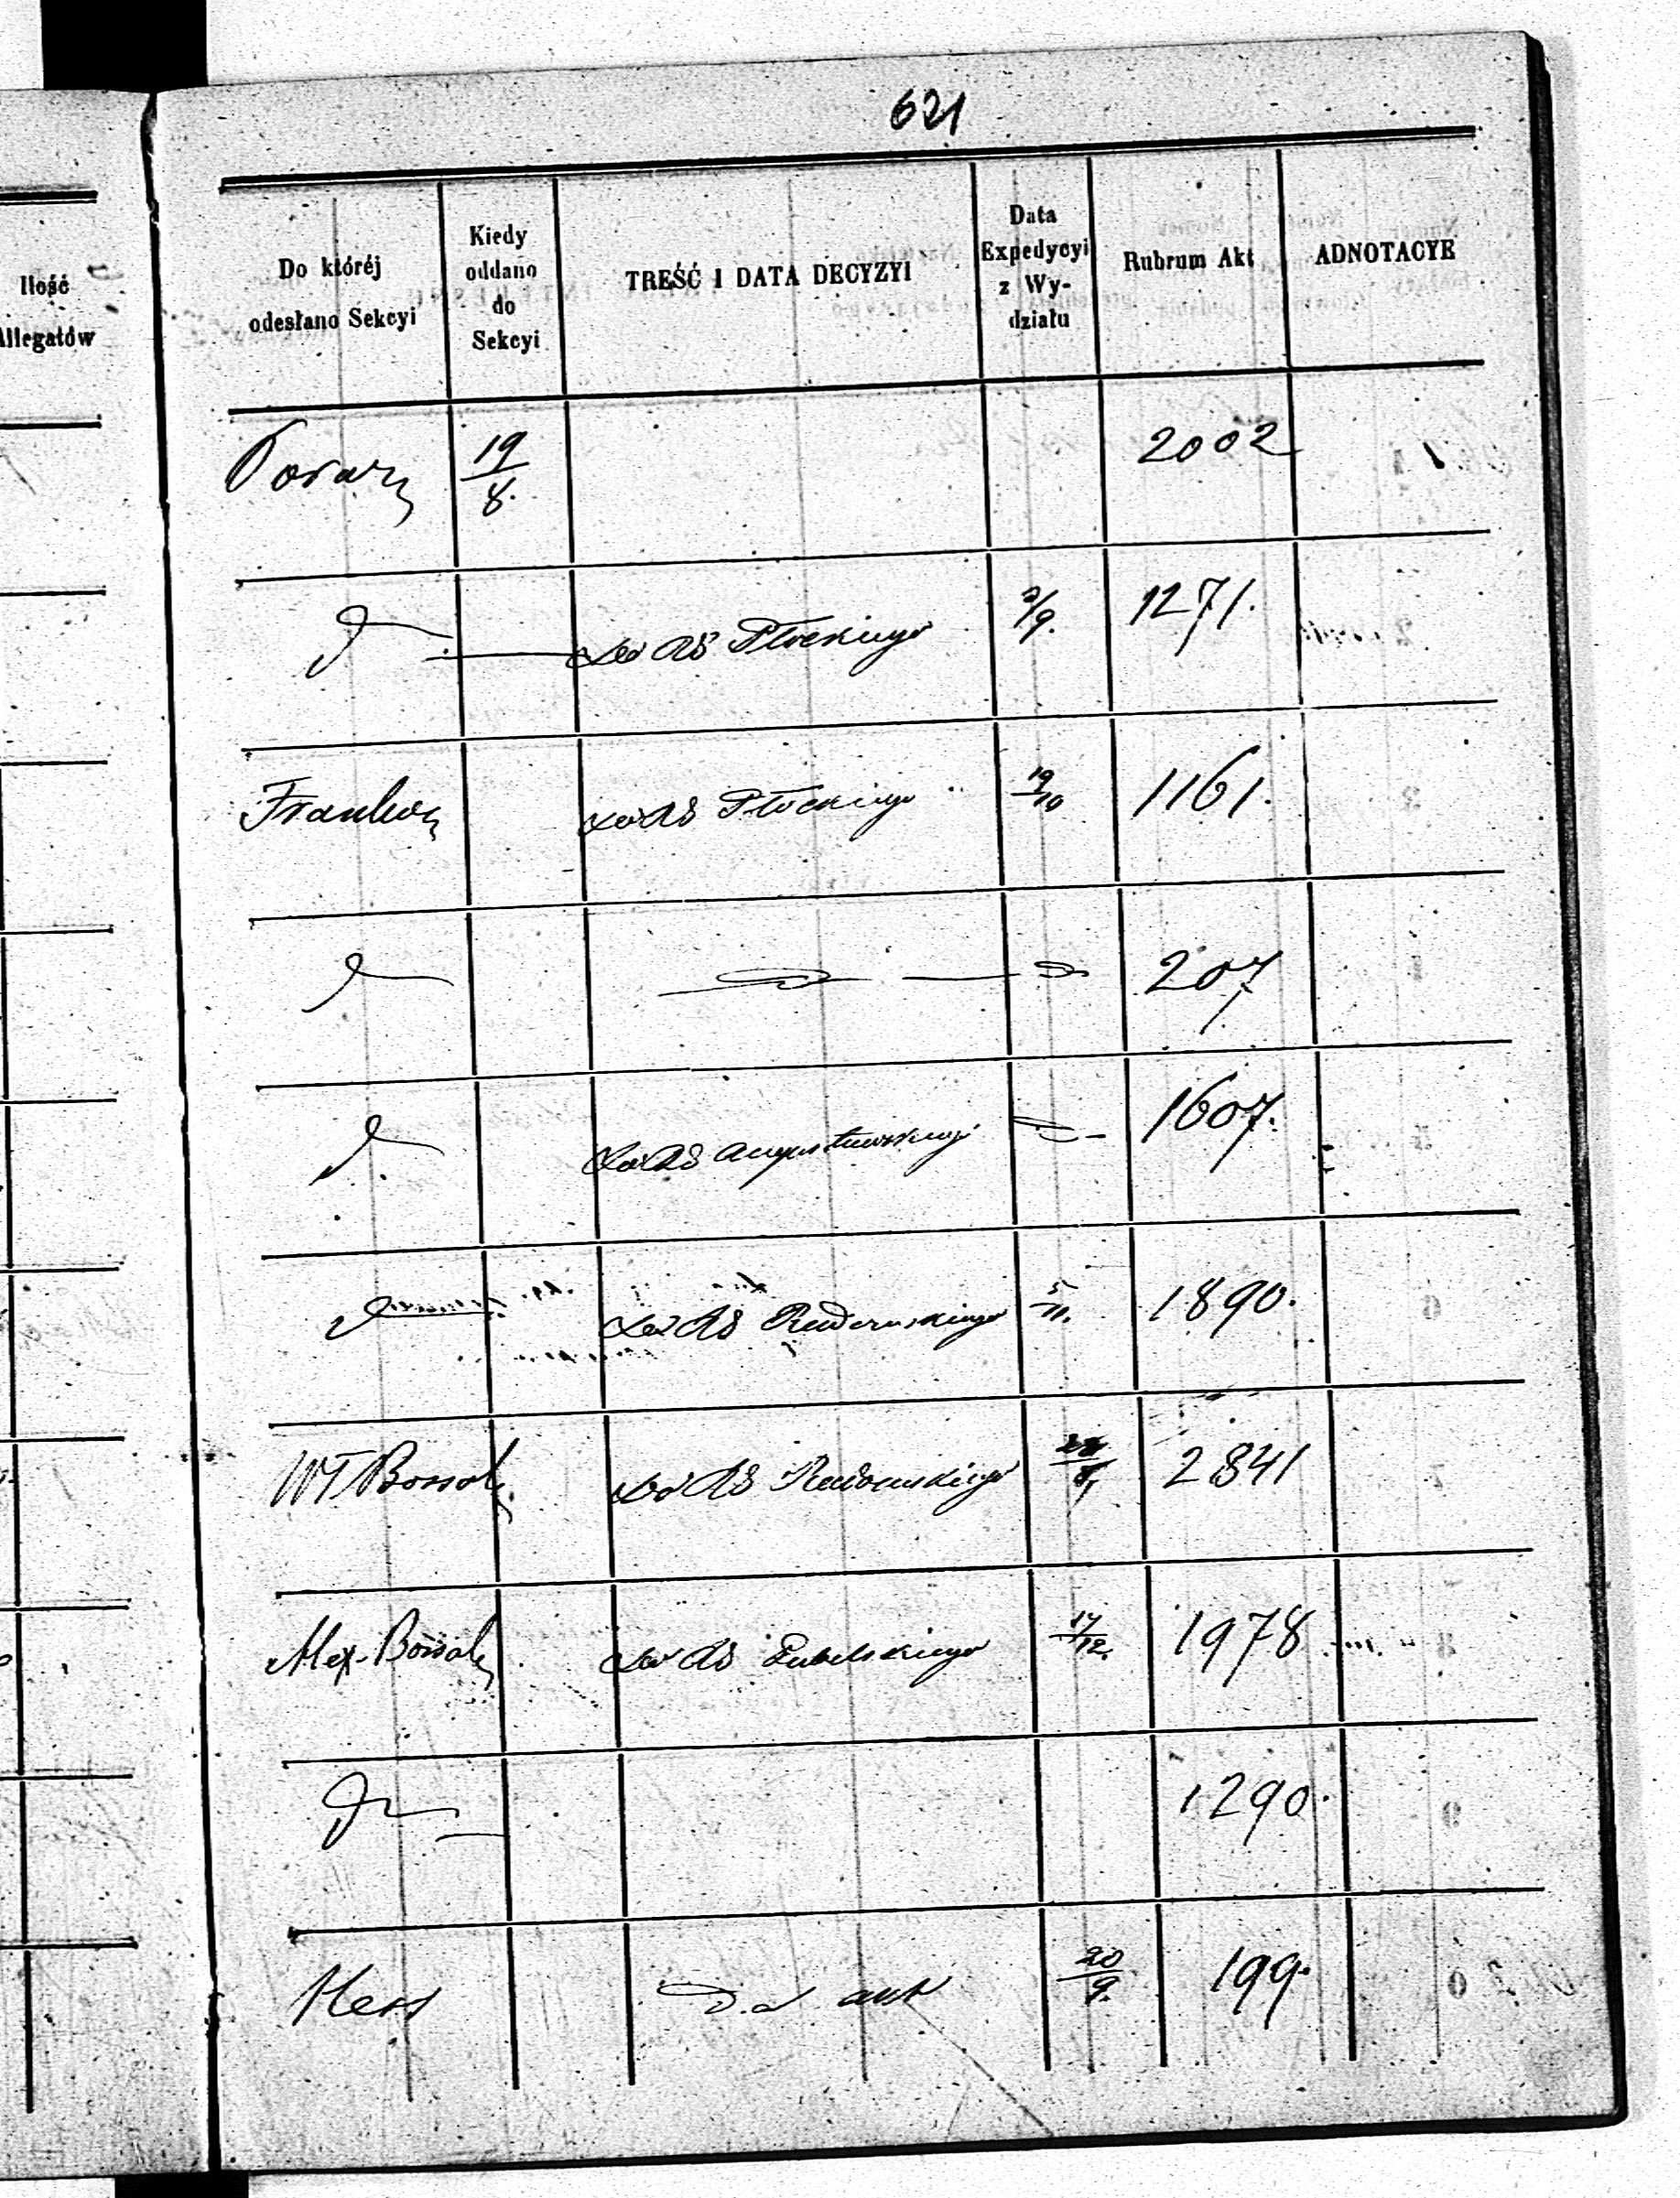 621
Ilość
Allegatów
Do któréj
odesłano Sekcyi
Kiedy
oddano
do
Sekcyi
TREŚĆ I DATA DECYZYI
Data
Expedycyi
z Wy-
działu
Rubrum Akt
ADNOTACYE
19/8. 2002
do RG Płockiego 2/9. 1271.
do RG Płockiego 19/10 1161.
207
do RG Augustowskiego 1607.
do RG Radomskiego 5/11. 1890.
do RG Radomskiego 2841
Alex. do RG Lubelskiego 17/12. 1978
1290.
Hess Do akt 20/9. 199.